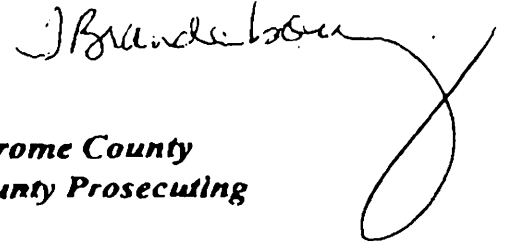 J Brandenbourg
rome County
unty Prosecuting